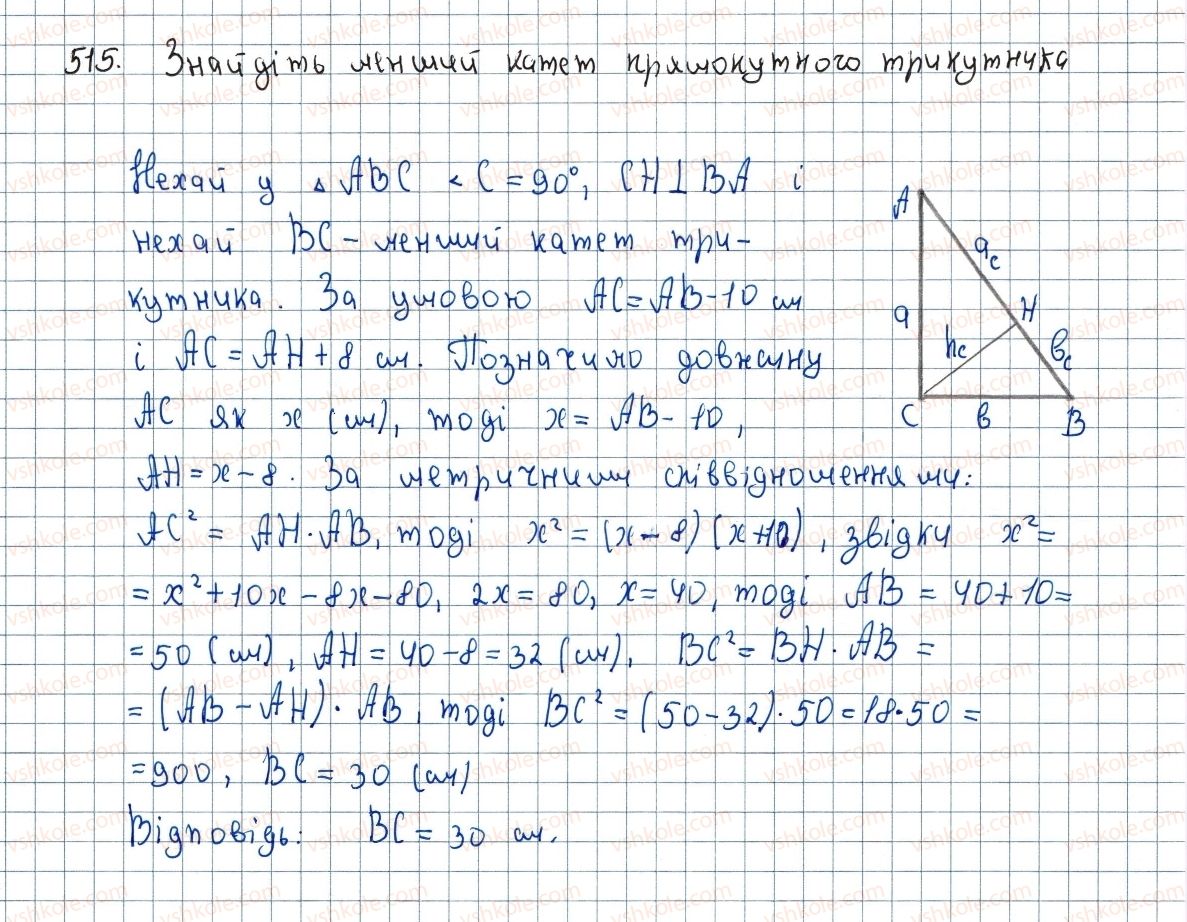 515. Знайдіть менший катет прямокутного трикутника
Нехай у △ ABC < C = 90°, CH⊥BA і
нехай BC – менший катет три-
кутника. За умовою AC = AB – 10 см
і AC = AH + 8 см. Позначимо довжину
AC як x (см), тоді x = AB – 10,
AH = x – 8. За метричними співвідношеннями:
AC² = AH · AB, тоді x² = (x – 8) (x + 10), звідки x² =
= x² + 10x – 8x – 80, 2x = 80, x = 40, тоді AB = 40 + 10 =
= 50 (см), AH = 40 – 8 = 32 (см), BC² = BH · AB =
= (AB – AH) · AB, тоді BC² = (50 – 32) · 50 = 18 · 50 =
= 900, BC = 30 (см)
Відповідь: BC = 30 см.
A
a_c
H
a
h_c
b_c
C
b
B
vshkole.com